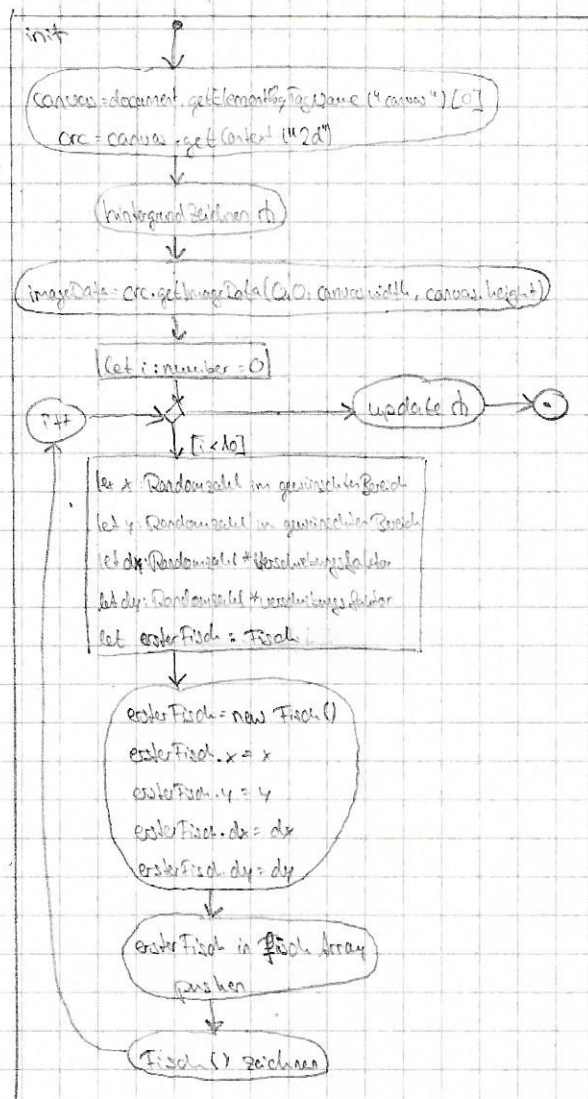 init
canvas = document.getElementsByTagName ("canvas") [0]
crc = canvas.getContext ("2d")
hintergrund zeichnen
imageData = crc.getImageData(0,0, canvas.width, canvas.height)
let i : number = 0
i++
update
[i<10]
let x: Randomzahl im gewünschten Bereich
let y: Randomzahl in gewünschten Bereich
let dx: Randomzahl * Verschiebungsfaktor
let dy: Randomzahl * Verschiebungsfaktor
let ersterFisch : Fisch
ersterFisch = new Fisch()
ersterFisch.x = x
ersterFisch.y = y
ersterFisch.dx = dx
ersterFisch.dy = dy
ersterFisch in Fisch Array
pushen
Fisch() zeichnen